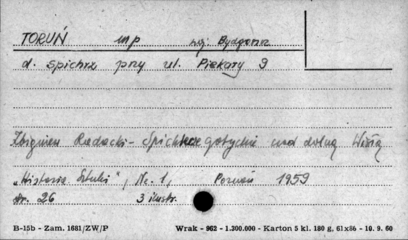 TORUŃ mp woj. Bydgoszcz
d. spichrz przy ul. Piekary 9
Zbigniew Radacki - Spichrze gotyckie nad dolną Wisłą
"Historia Sztuki", Nr. 1, Poznań 1959
str. 26 3 ilustr.
B-15b - Zam. 1681/ZW/P Wrak - 962 - 1.200.000 - Karton 5 kl. 180 g, 61x86 - 10. 9. 60